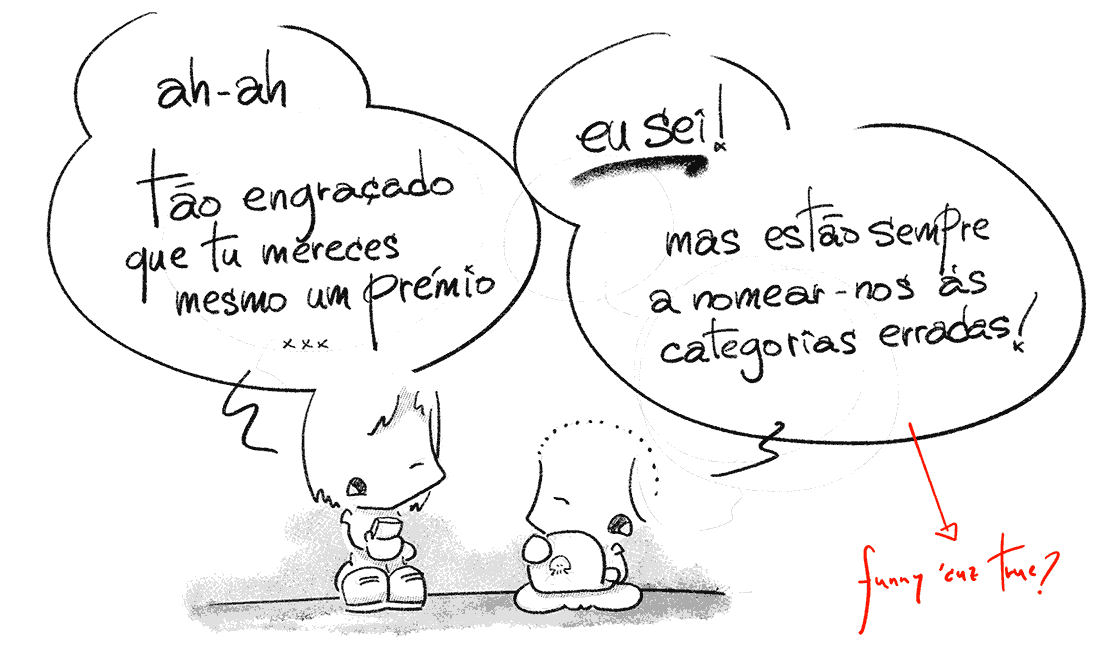 ah-ah
tão engraçado
que tu mereces
mesmo um prémio
xxx
eu sei!
mas estão sempre
a nomear-nos às
categorias erradas!
funny 'cuz true?